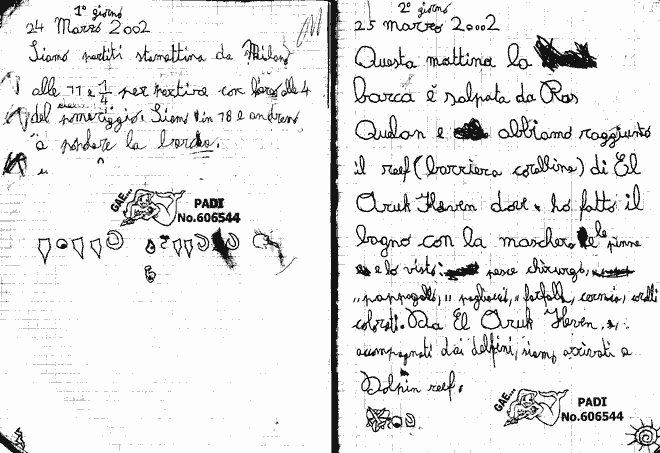 1° giorno
24 Marzo 2002
Siamo partiti stamattina da Milano
alle 11 e 1/4 per partire con alle 4
del pomeriggio. Siamo in 18 e andremo
a la barca.
GAE...
PADI
No.606544
2° giorno
25 marzo 2002
Questa mattina la
barca è salpata da Ras
Qulan e abbiamo raggiunto
il reef (barriera corallina) di El
Aruk Heven dove ho fatto il
bagno con la maschera e le pinne
e ho visto: pesce chirurgo,
"pappagallo, " pagliaccio, " farfalla, cernia, coralli
colorati. Da El Aruk Heven,
accompagnati dai delfini, siamo arrivati a
Dolpin reef.
GAE...
PADI
No.606544